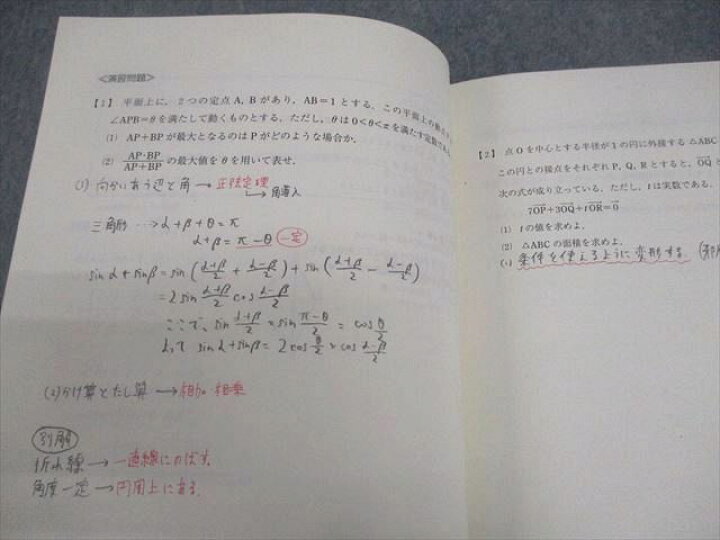 <演習問題>
【1】 平面上に, 2つの定点 A, B があり, AB=1 とする. この平面上の動点
∠APB=θ を満たして動くものとする. ただし, θ は 0<θ<π を満たす定数であ
(1) AP+BP が最大となるのは P がどのような場合か.
(2) AP·BP/AP+BP の最大値を θ を用いて表せ.
(1) 向かいあう辺と角 → 正弦定理
角導入
三角形 … → α+β+θ=π
α+β=π-θ 一定
sinα+sinβ=sin(α+β/2 + α-β/2)+sin(α+β/2 - α-β/2)
=2sin α+β/2 cos α-β/2
ここで、sin α+β/2 = sin π-θ/2 = cos θ/2
よって sinα+sinβ= 2cos θ/2 × cos α-β/2
(2) かけ算とたし算 → 相加・相乗
別解
折れ線 → 一直線にのばす.
角度一定 → 円周上にある.
【2】 点 O を中心とする半径が 1 の円に外接する △ABC
この円との接点をそれぞれ P, Q, R とすると, OQ と
次の式が成り立っている. ただし, t は実数である.
7OP+3OQ+tOR=0
(1) t の値を求めよ.
(2) △ABC の面積を求めよ.
(1) 条件を使えるように変形する